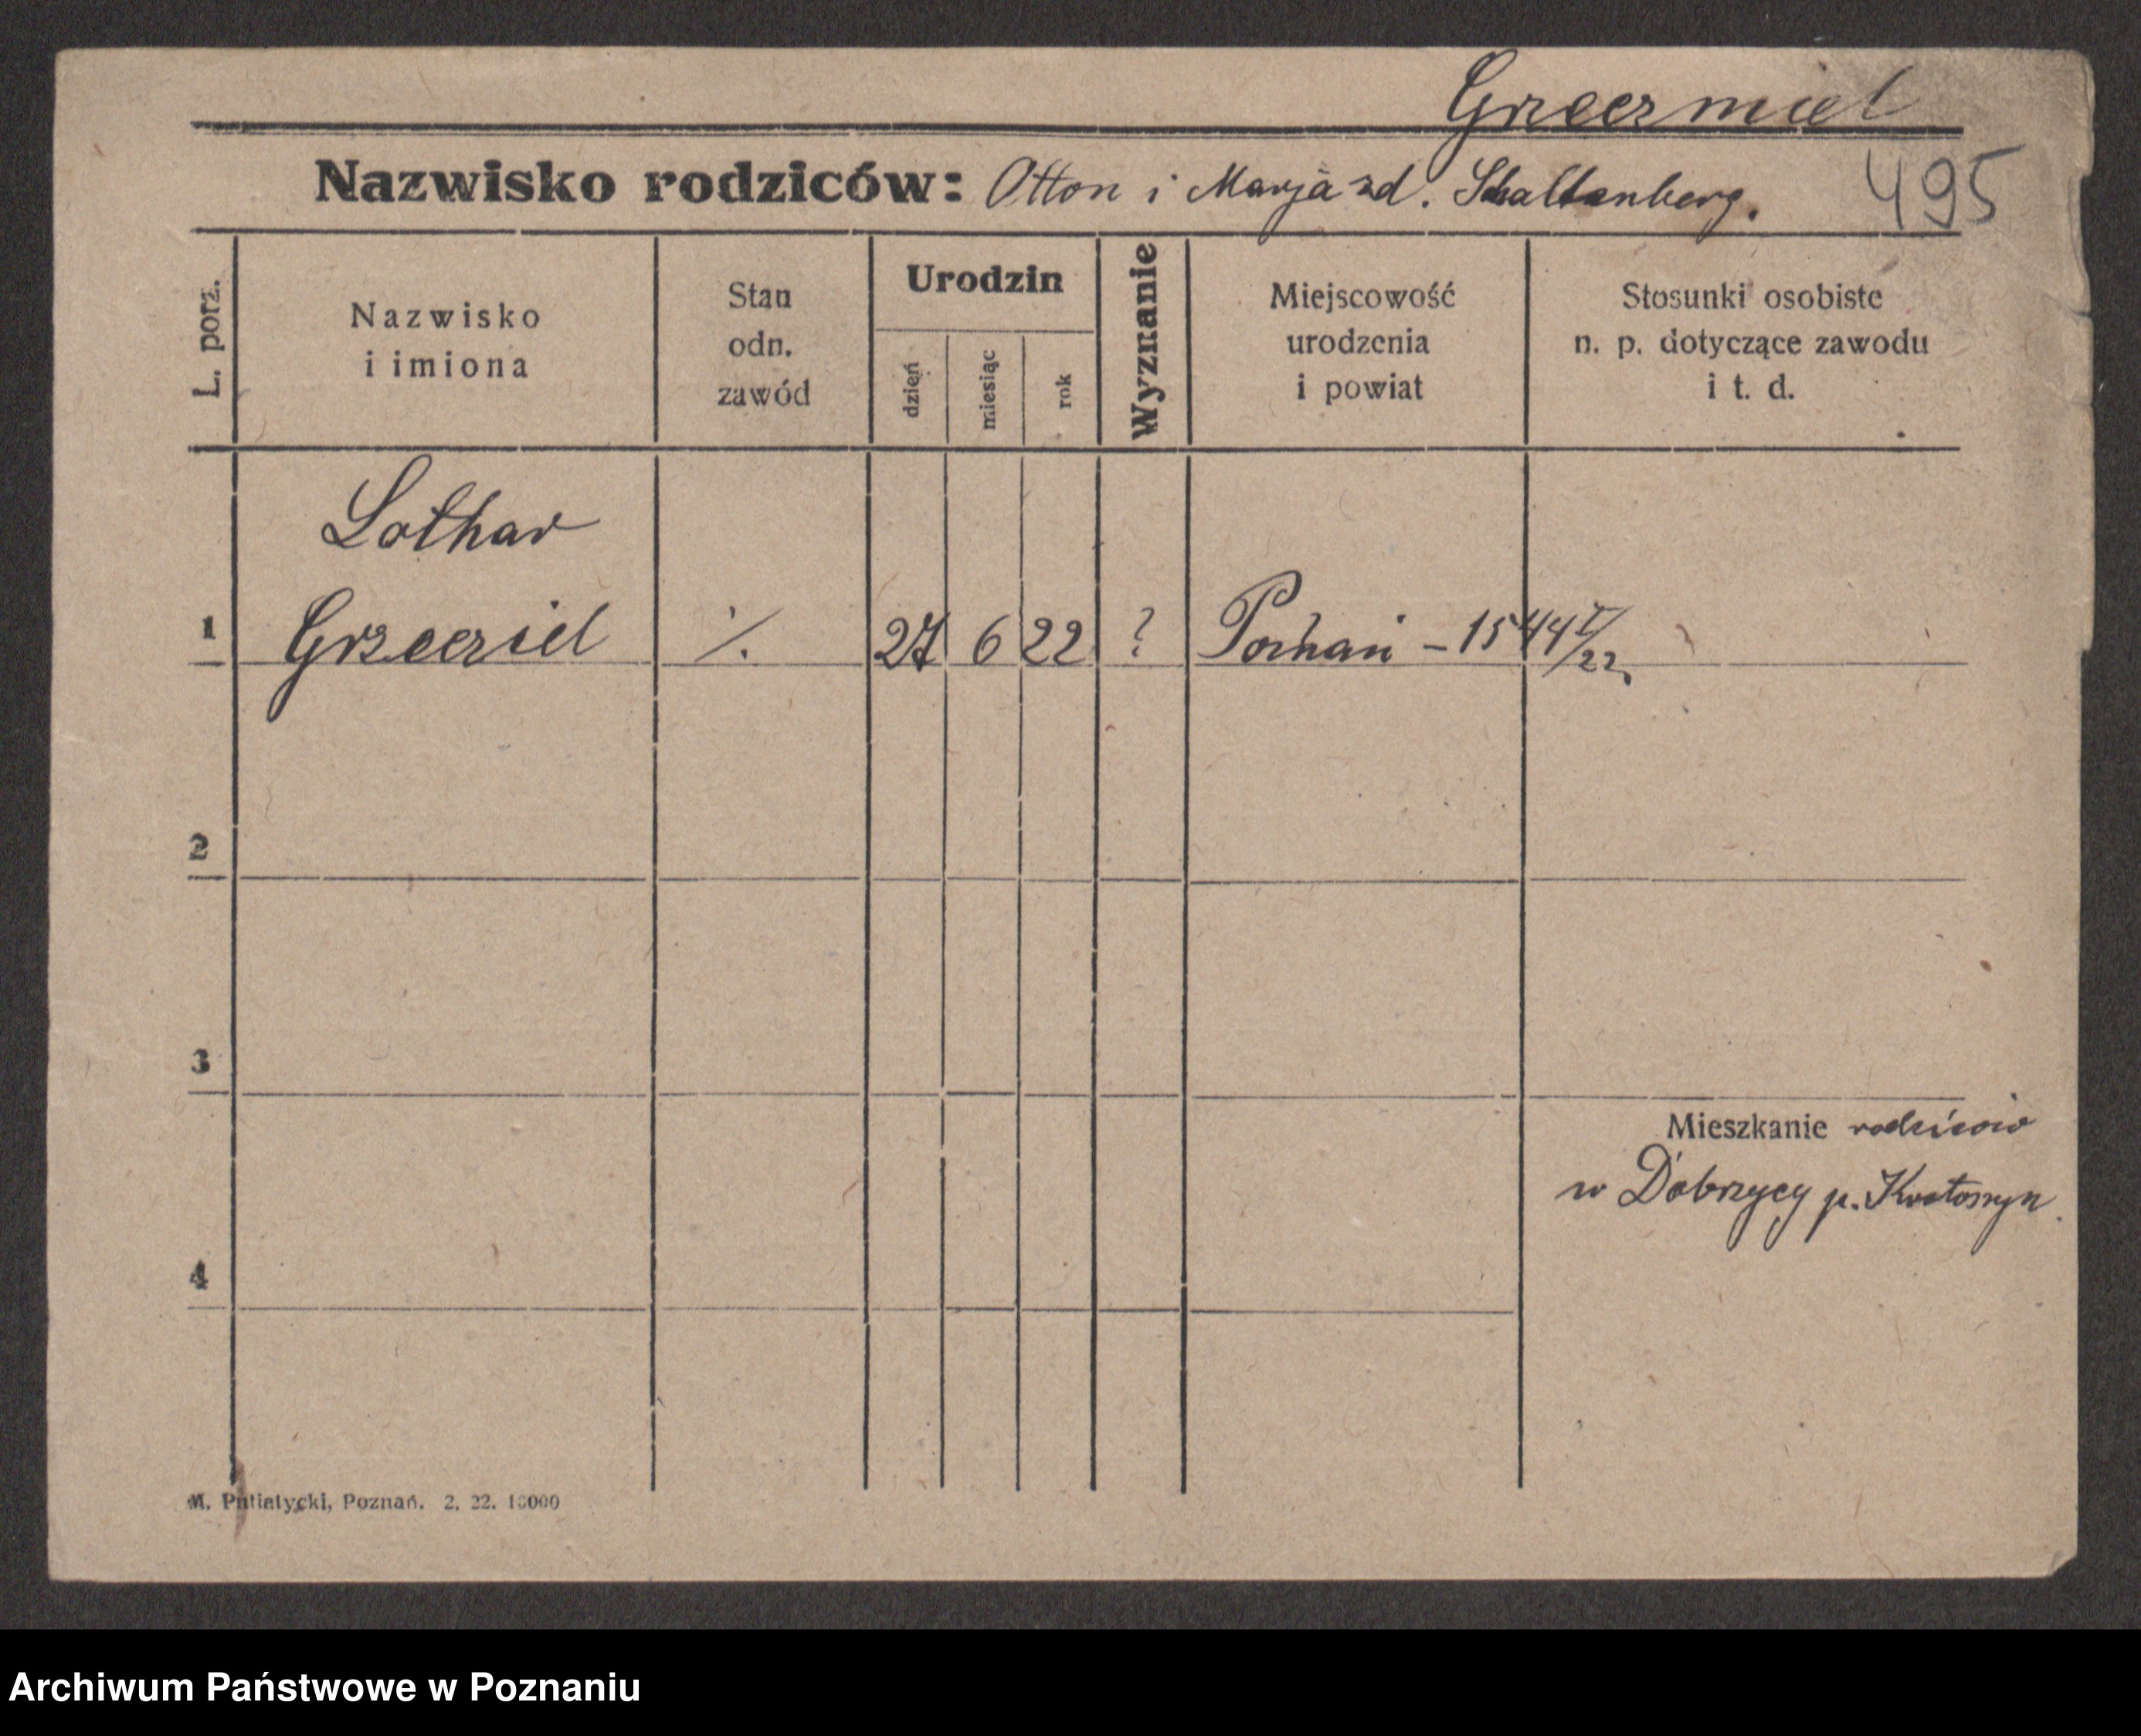 Grzermiel
Nazwisko rodziców: Otton i Marja zd. Schaltenberg. 495
L. porz.
Nazwisko
i imiona
Stan
odn.
zawód
Urodzin
dzień
miesiąc
rok
Wyznanie
Miejscowość
urodzenia
i powiat
Stosunki osobiste
n. p. dotyczące zawodu
i t. d.
Lothar
1 ./. 27 6 22 ? Poznań - 1544 I/22.
2
3
Mieszkanie rodziców
w Dobrzycy p. Krotoszyn.
4
M. Putiatycki, Poznań. 2. 22. 10000
Archiwum Państwowe w Poznaniu